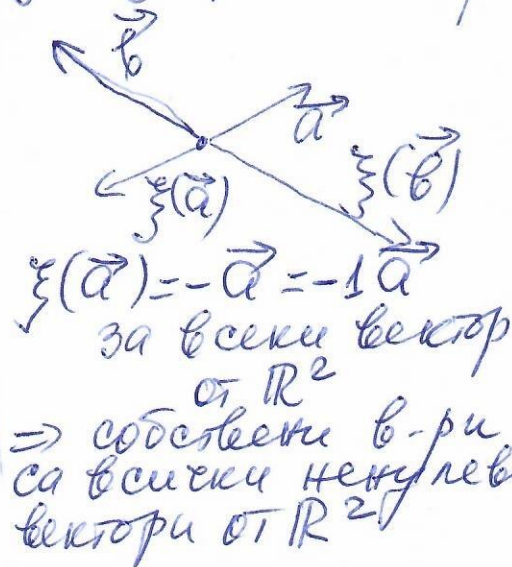 b⃗
a⃗
ξ(b⃗)
ξ(a⃗)
ξ(a⃗)=-a⃗=-1a⃗
за всеки вектор
от ℝ²
=> собствени в-ри
са всички ненулев
вектори от ℝ²